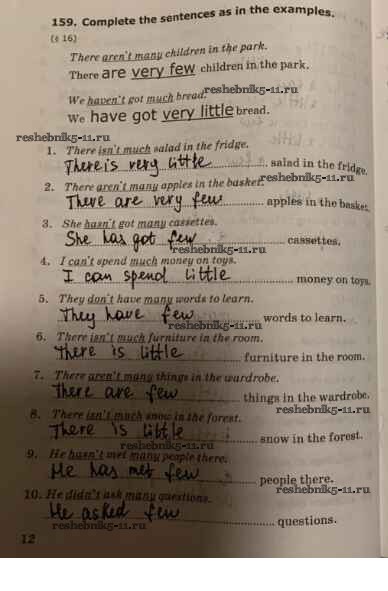 159. Complete the sentences as in the examples.
(§ 16)
There aren't many children in the park.
There are very few children in the park.
reshebnik5-11.ru
We haven't got much bread.
We have got very little bread.
reshebnik5-11.ru
1. There isn't much salad in the fridge.
There is very little salad in the fridge.
reshebnik5-11.ru
2. There aren't many apples in the basket.
There are very few apples in the basket.
3. She hasn't got many cassettes.
She has got few cassettes.
reshebnik5-11.ru
4. I can't spend much money on toys.
I can spend little money on toys.
5. They don't have many words to learn.
They have few words to learn.
reshebnik5-11.ru
6. There isn't much furniture in the room.
There is little furniture in the room.
7. There aren't many things in the wardrobe.
There are few things in the wardrobe.
reshebnik5-11.ru
8. There isn't much snow in the forest.
There is little snow in the forest.
reshebnik5-11.ru
9. He hasn't met many people there.
He has met few people there.
reshebnik5-11.ru
10. He didn't ask many questions.
He asked few questions.
reshebnik5-11.ru
12